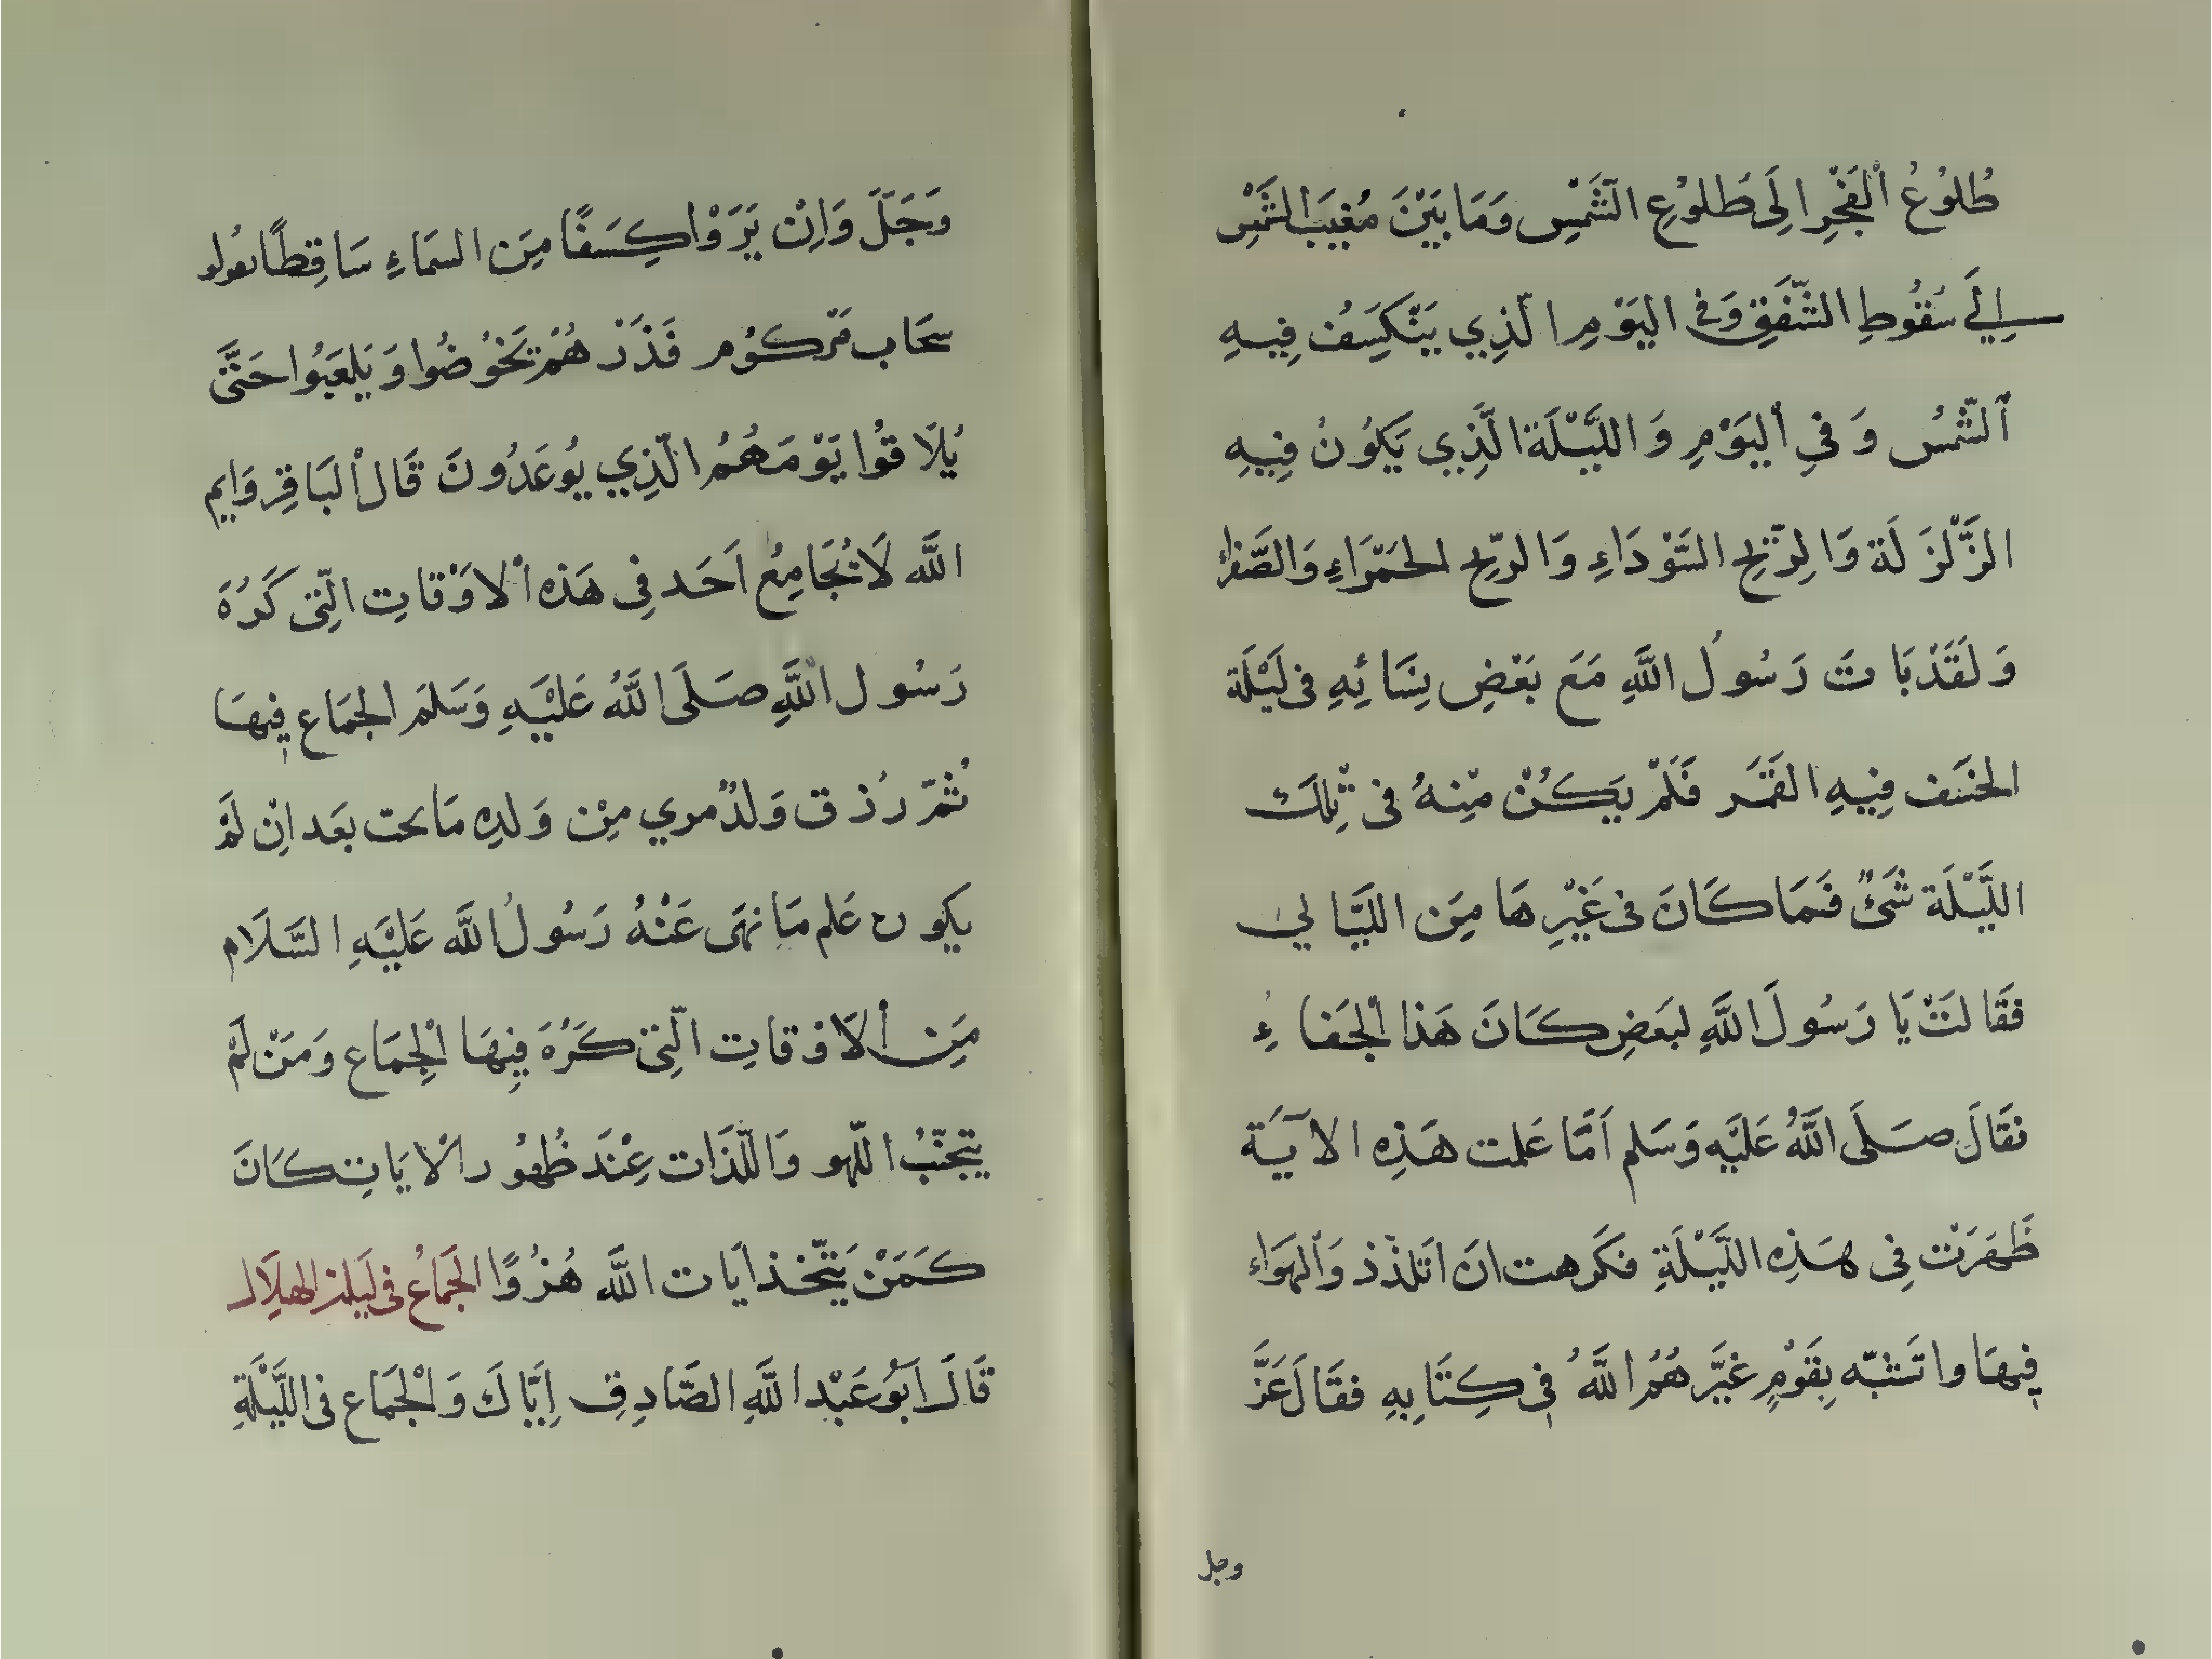 طُلوُعُ الْفَجْرِ اِلَى طُلوُعِ الشَّمْسِ وَمَا بَيْنَ مَغِيبَ الشَّمْسِ
اِلَي سُقُوطِ الشَّفَقِ وَفي اليَوْمِ الَّذِي يَنْكَسِفُ فِيهِ
الشَّمْسُ وَ فيِ اليَوْمِ وَ اللَّيْلَة الَّذِي يَكُونُ فِيهِ
الزَّلْزَلَة وَالرِّيْحِ السَّوْدَاءِ وَالرِّيْحِ الحَمْرَاءِ وَالصَّفراء
وَلَقَدْ بَاتَ رَسُولُ اللَّهِ مَعَ بَعْضِ نِسَائِهِ فى لَيْلَة
الخسَف فِيهِ القَمَر فَلَمْ يَكُنْ مِنْهُ فى تِلكَ
اللَّيْلَة شَئٌ فَمَا كَانَ فى غَيْرِهَا مِنَ اللَّيَالي
فَقَالَتْ يَا رَسُولَ اللَّهِ لبَعَضِ كَانَ هَذا الْجَفاءُ
فقَالَ صَلَى اللَّهُ عَلَيْهِ وَسَلم اَمَّا عَلمت هَذِهِ الاَيَة
ظَهَرَتْ فِى هَذِهِ اللَّيْلَةِ فكَرهت انَ اَتلذّذ وَالهَوَاء
فِيهَا واتَشبّه بِقَوْمٍ غَيَّرهُمُ اللَّهُ فِى كِتَابِهِ فقَالَ عَزَّ
وجل
وَجَلَّ وَاِنْ يَرَوْا كِسَفًا مِنَ السَمَاءِ سَاقِطًا يقولو
سحَاب مَّركوُم فَذَرْهُمْ يَخُوُضُوا وَيَلعَبُوا حَتَّىَ
يُلَاقُوا يَوْمَهُمُ الَّذِي يُوعَدُونَ قَال الْبَاقِر وَايم
اللَّه لَا يُجَامِعُ اَحَد فِى هَذه الاوَْقاتِ الّتِى كَرُهَ
رَسُول اللَّهِ صَلَى اللَّهُ عَلَيْهِ وَسَلمَ الجمَاع فِيهَا
ثُمّ رُذق وَلدٌ مري مِنْ وَلدِه مَا يحت بعَد انِ لَمْ
يكون عَلم مَا نهَى عَنْهُ رَسُولُ اللَّه عَلَيْهِ السَّلَام
مِنَ الاَوْقاتِ الّتِى كَرُهَ فِيهَا الْجِمَاع وَمَنْ لَمْ
يتجّنبُ اللّهو وَاللَّذَات عِنْدَ ظُهوُر الْايَاتِ كَانَ
كَمَنْ يَتّخذ ايَات اللَّه هُزُوًا الجَمَاعُ فى لَيلة الهلَال
قَالَ اَبوُ عَبْد اللَّهِ الصَّادِقِ اِيّاكَ وَالْجَمَاع فى اللَّيْلَةِ